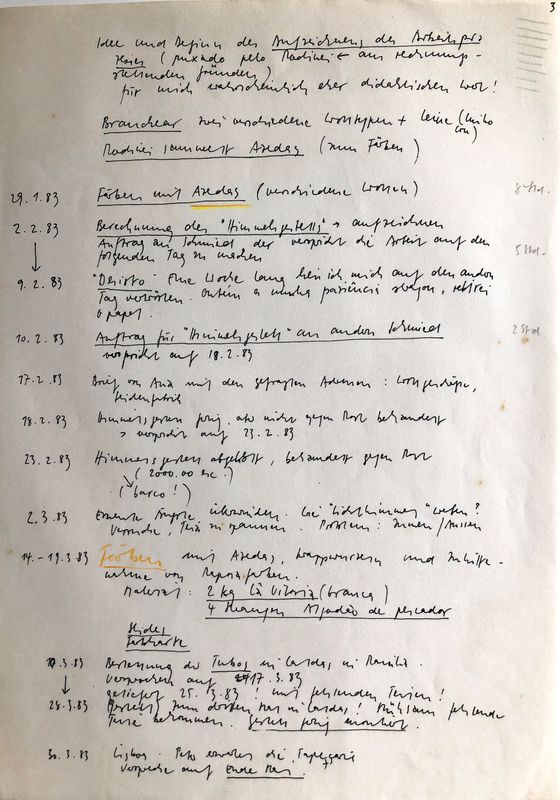 3
Idee und Beginn der Aufzeichnung des Arbeitspro
zesses (puxado pelo Radinei ← aus rechnungs-
stellenden Gründen)
für mich wahrscheinlich eher didaktischen Wert!
zwei verschiedene Wolltypen + Leine (Linho
Radinei sammelt Azedas (zum Färben)
29.1.83 Färben mit Azedas (verschiedene Wollen) 8 Std.
2.2.83 Berechnung des "Himmelsgestells" → aufzeichnen
Auftrag an Schmied der verspricht die Arbeit auf den
folgenden Tag zu machen 5 Std.
9.2.83 "Desisto" Eine Woche lang hin ich mich auf den andern
Tag vertrösten. Ontem a minha paciência,
o papel.
10.2.83 Auftrag für "Himmelsgestell" an andern Schmied 2 Std
verspricht auf 18.2.83
17.2.83 Brief von Ana mit den gefragten Adressen: Wollgeschäfte,
Seidenfabrik
18.2.83 Himmelsgestell fertig, aber nicht gegen Rost behandelt
→ verspricht auf 23.2.83
23.2.83 Himmelsgestell abgeholt, behandelt gegen Rost
(2000.00 esc.)
(barco!)
2.3.83 Erneute Ängste überwinden. Wie "Lichthimmel" weben?
Versuche, zu spannen. Problem: Innen/Aussen
14.-19.3.83 Färben mit Azedas, Krappwurzeln und Zuhilfe-
nahme von farben.
Material: 2 kg Lã Vitoria (branca)
4 Strangen Algodão de pescador
Slides
10.3.83 Bestellung der Tubos in Caldas
Versprochen auf 17.3.83
geliefert 25.3.83! mit fehlenden Teilen!
28.3.83 zum dritten Mal in Caldas! Mühsam fehlende
Teile bekommen. Gestell fertig montiert.
30.3.83 Lisboa.
Verspreche auf Ende Mai.